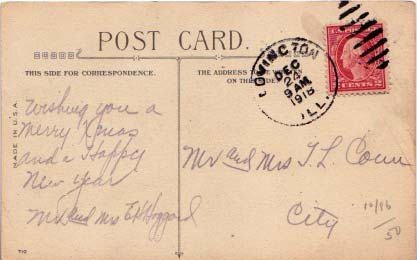 POST CARD.
THIS SIDE FOR CORRESPONDENCE.
THE ADDRESS TO
ON THE SIDE
MADE IN U.S.A.
LOVINGTON
DEC
24
9 AM
1918
ILL.
CENTS 2
Wishing you a
Merry Xmas
and a Happy
New Year
Mr and Mrs E H Hoggard
Mr and Mrs T. L. Conn
City
10/96
50
710